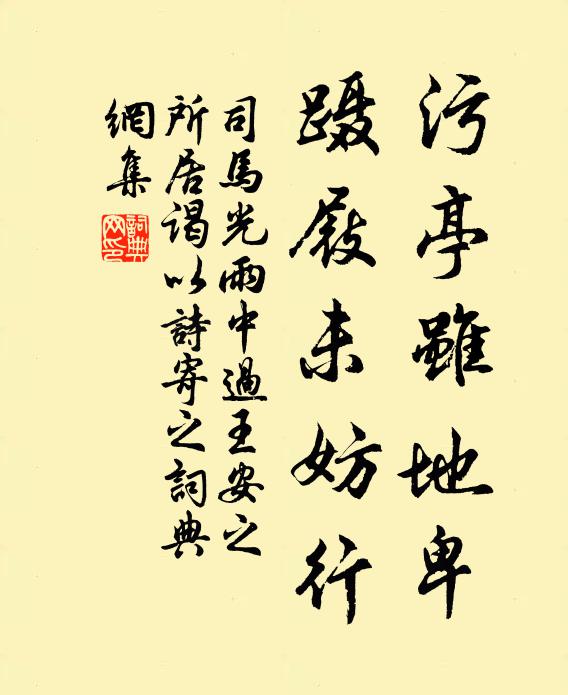 污亭雖地卑
蹑屐未妨行
司馬光雨中過王安之
所居謁以詩寄之詞典
網集
詞典網印